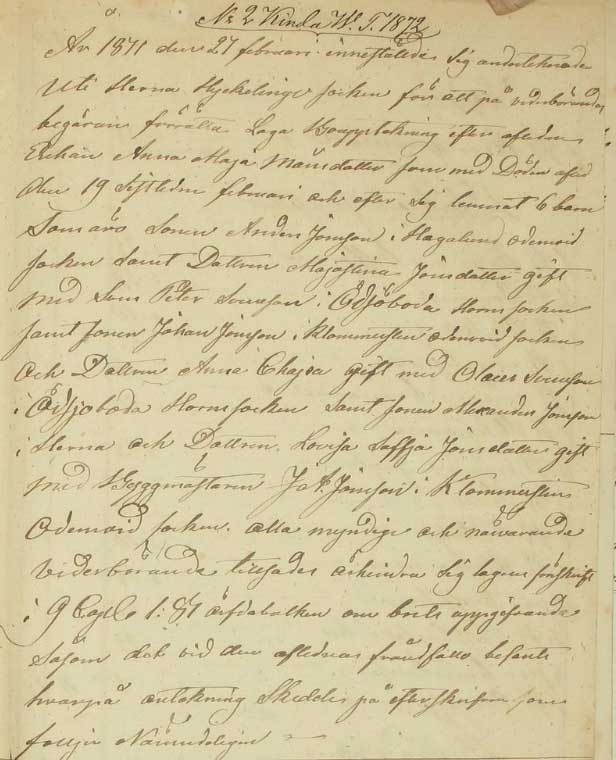 No 2 Kinda W. T. 1872
År 1871 den 27 februari instälde Sig undertecknade
Uti Herna Hyckelinge socken för att på vederbörandes
begäran förrätta Laga Bouppteckning efter aflidna
Enkan Anna Maja Månsdotter som med Döden afled
den 19 Sistleden februari och efter Sig lemnat 6 barn
Som äro Sonen Anders Jonsson i Hagalund odensvid
socken samt Dottren Majastina Jonsdotter gift
med Sven Peter Svensson i Ödsjöboda Horns socken
samt sonen Johan Jonsson i Klommesten odensvid socken
och Dottren Anna Chajsa gift med Claes Svensson
i Ödsjöboda Horns socken samt sonen Alexander Jonsson
i Herna och Dottren Lovisa Soffja Jonsdotter gift
med Byggmästaren Jonsson i Klommesten
Odensvid socken. alla myndige och närvarande
vederbörande tillsades erhindra Sig lagens föreskrift
i 9 Cap 1: § ärfdabalken om boets uppgifvande
Såsom det vid den aflidnas frånfälle befants
hvarpå antekning Skedde på efterskrifne som
följer Nämndeligen